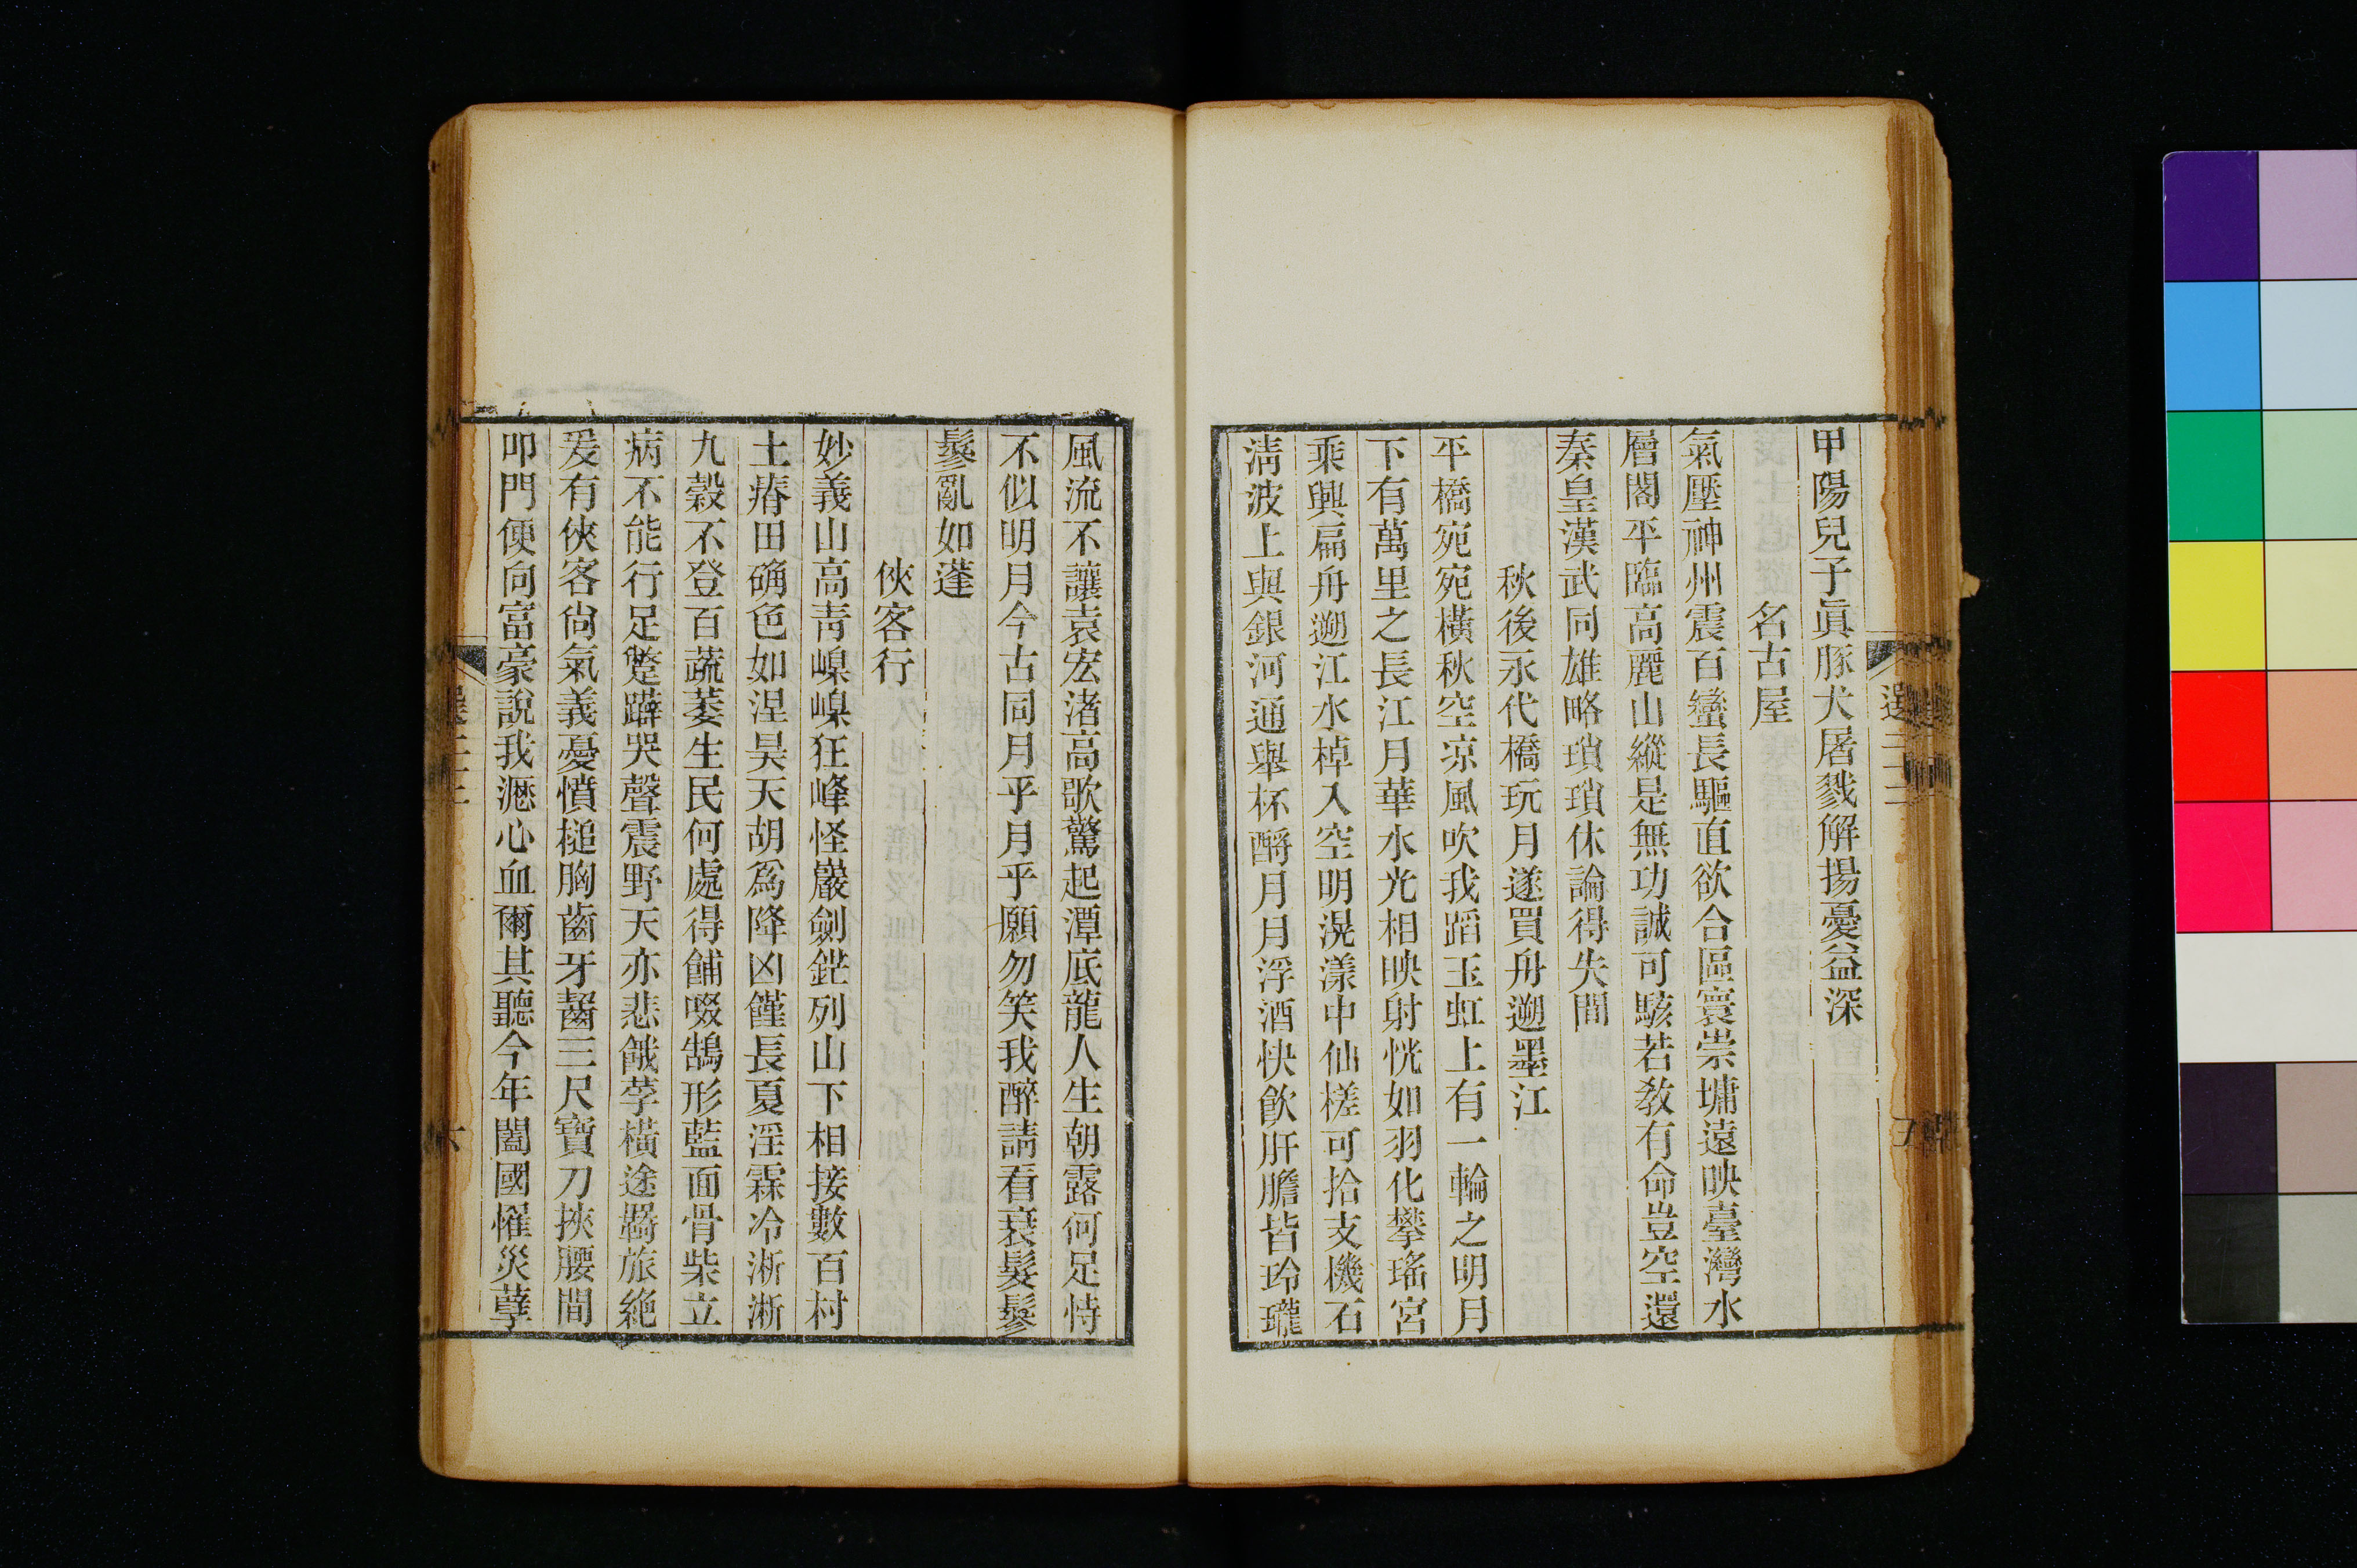 甲陽兒子眞豚犬屠戮解揚憂益深
名古屋
氣壓神州震百蠻長驅直欲合區寰崇墉遠映臺灣水
層閣平臨高麗山縱是無功誠可駭若敎有命豈空還
秦皇漢武同雄略瑣瑣休論得失間
秋後永代橋玩月遂買舟遡墨江
平橋宛宛橫秋空凉風吹我蹈玉虹上有一輪之明月
下有萬里之長江月華水光相映射恍如羽化攀瑤宮
乘興扁舟遡江水棹入空明滉漾中仙槎可拾支機石
淸波上與銀河通擧杯酹月月浮酒快飮肝膽皆玲瓏
風流不讓袁宏渚高歌驚起潭底龍人生朝露何足恃
不似明月今古同月乎月乎願勿笑我醉請看衰髮鬖
鬖亂如蓬
俠客行
妙義山高靑嵲嵲狂峰怪巖劍鋩列山下相接數百村
土瘠田确色如涅昊天胡爲降凶饉長夏淫霖冷淅淅
九穀不登百蔬萎生民何處得餔啜鵠形藍面骨柴立
病不能行足蹩躃哭聲震野天亦悲餓莩橫途羇旅絶
爰有俠客尙氣義憂憤搥胸齒牙齧三尺寶刀挾腰間
叩門便向富豪說我瀝心血爾其聽今年闔國懼災孼
六